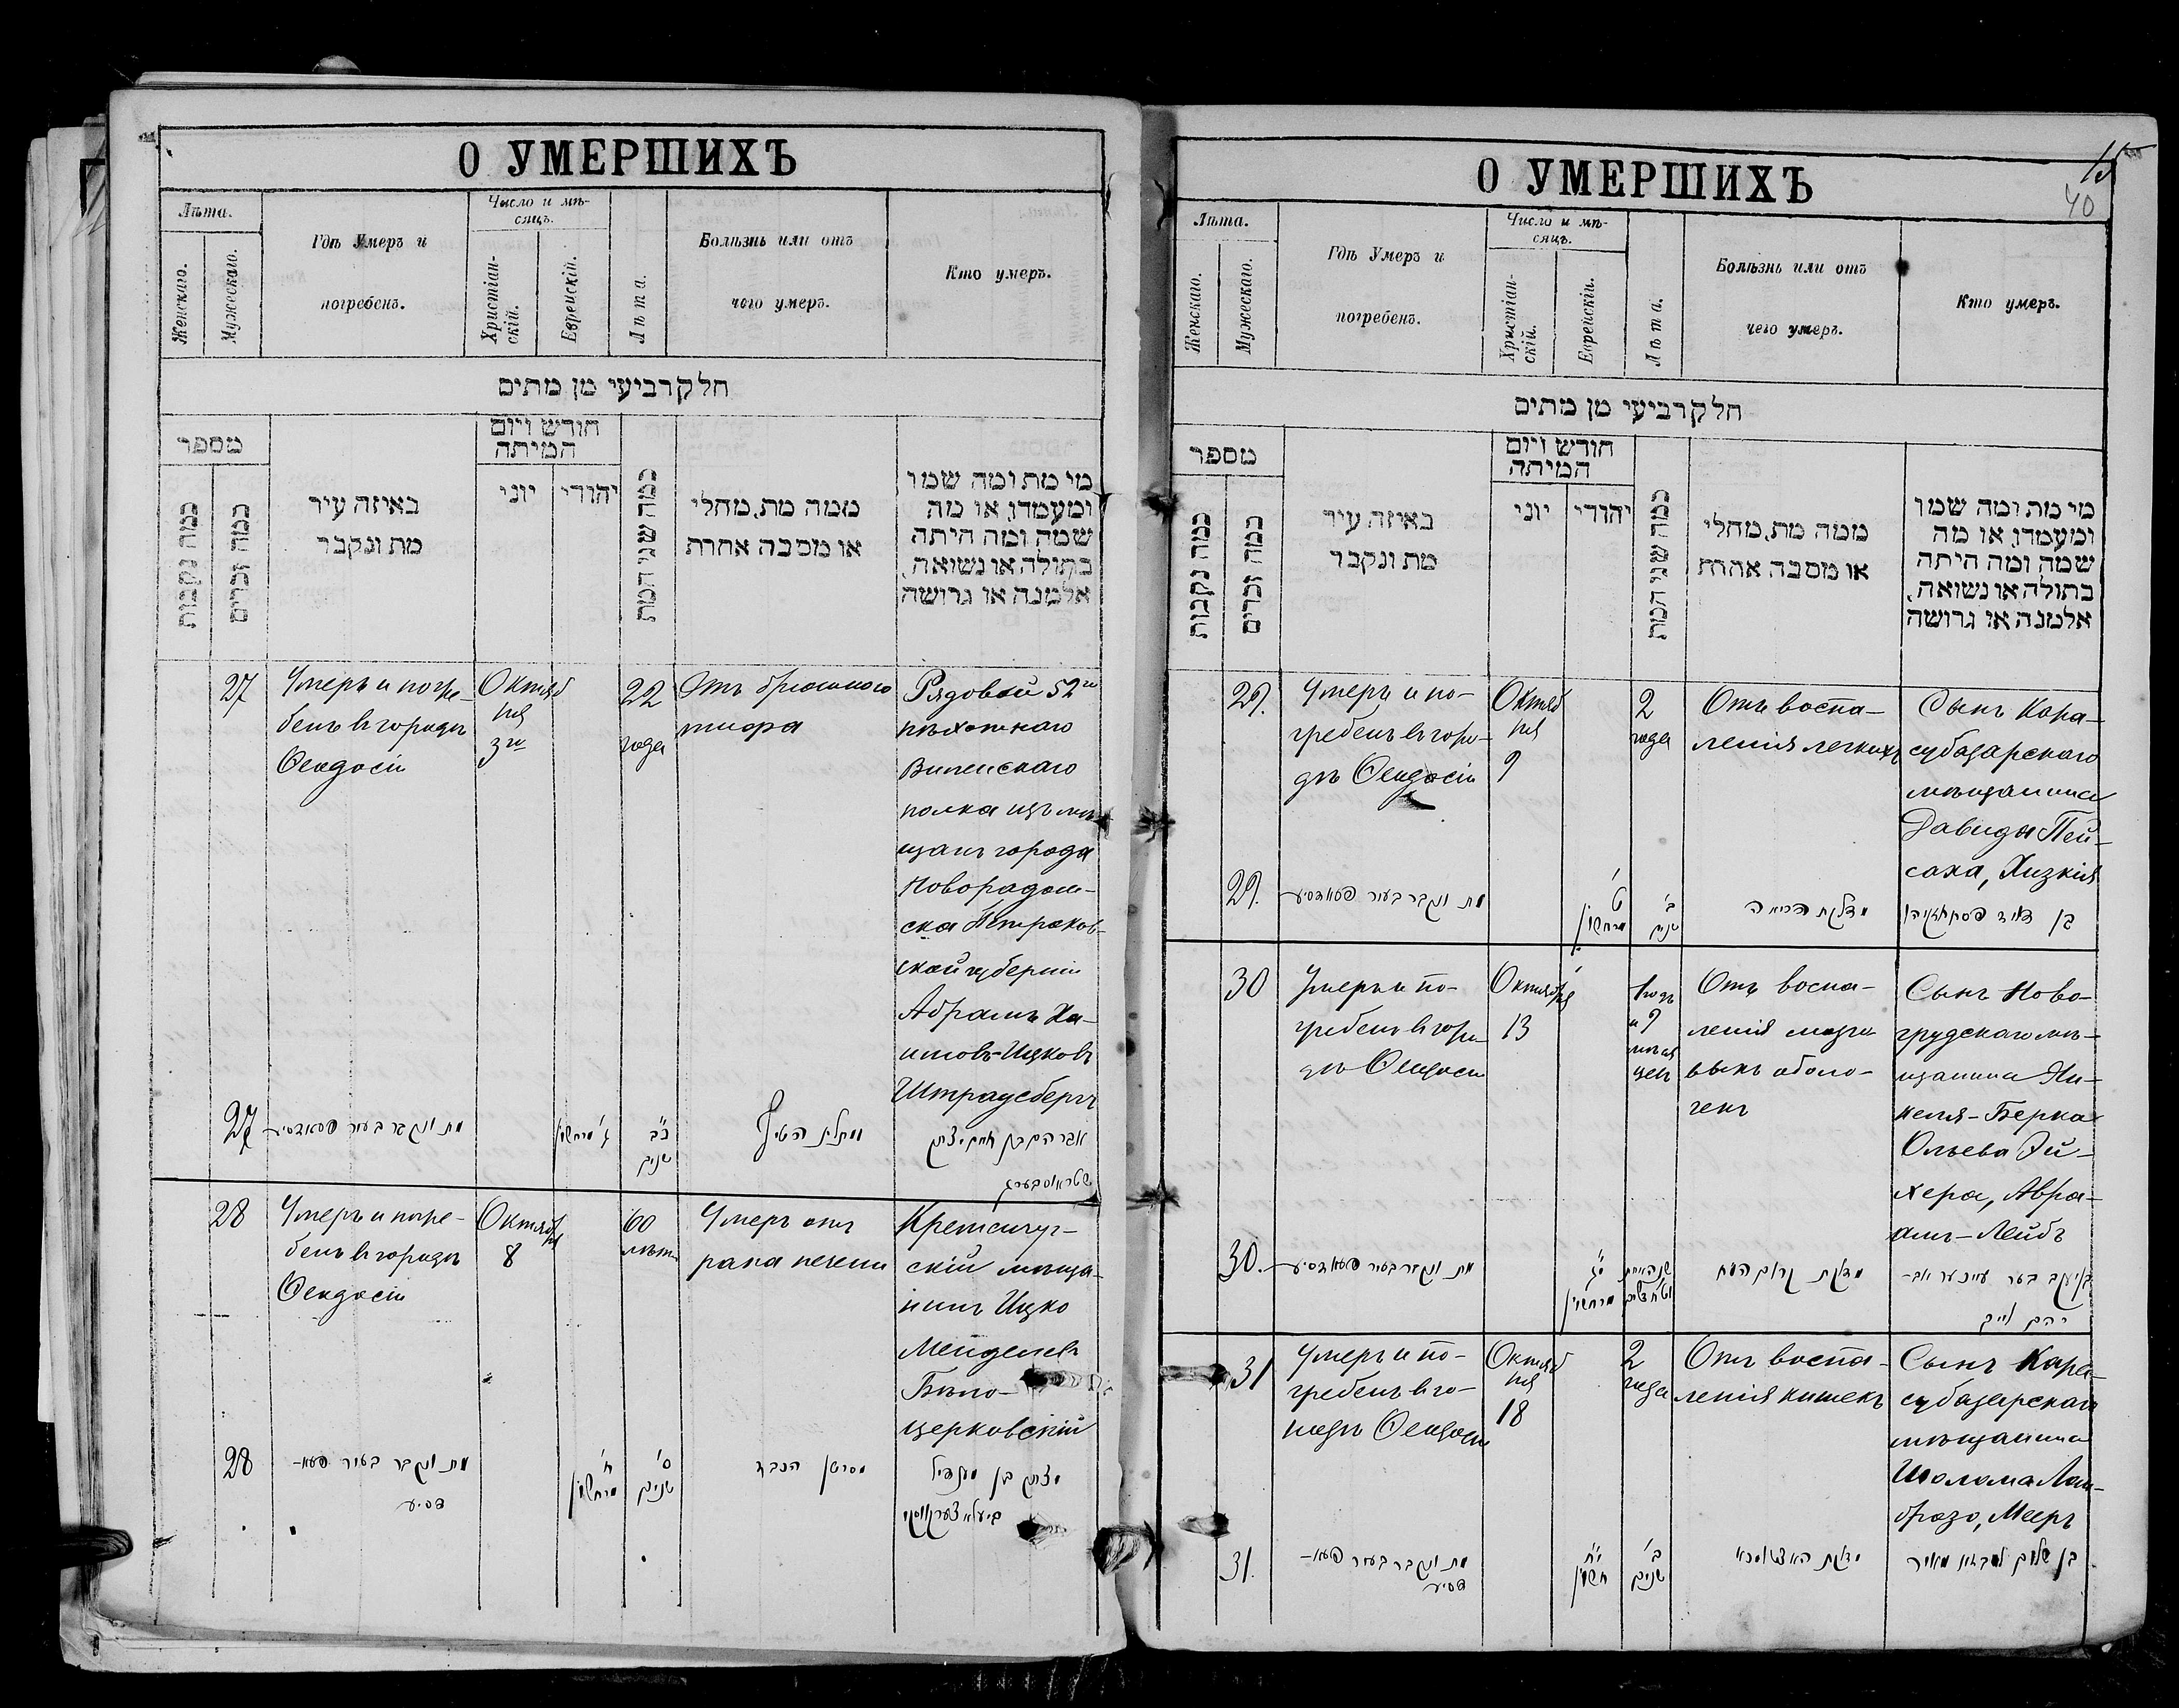 О УМЕРШИХЪ
Лѣта.
Женскаго.
Мужескаго.
Гдѣ Умеръ и
погребенъ.
Число и мѣ-
сяцъ.
Христіан-
скій.
Еврейскій.
Лѣта.
Болѣзнь или отъ
чего умеръ.
Кто умеръ.
חלק רביעי מן מתים
מספר
כמה נקבות
כמה זכרים
באיזה עיר
מת ונקבר
חודש ויום
המיתה
יוני
יהודי
כמה שני המת
ממה מת, מחלי
או מסבה אחרת
מי מת ומה שמו
ומעמדו, או מה
שמה ומה היתה
בתולה או נשואה,
אלמנה או גרושה
27
Умеръ и погре-
бенъ въ городѣ
Ѳеодосіи
Октяб
ря
3го
22
года
Отъ брюшного
тифа
Рядовой 52го
пѣхотнаго
Виленскаго
полка изъ мѣ-
щанъ города
Новорадом-
ска Петроков-
ской губерніи
Абрамъ Ха-
имовъ-Ицковъ
Штраусбергъ
27
מת ונקבר בעיר פעאדסיע
ג' מרחשון
כ"ב
שנים
אברהם בן חיים יצחק
שטראוסבערג
28
Умеръ и погре-
бенъ въ городѣ
Ѳеодосіи
Октяб
ря
8
60
лѣтъ
Умеръ отъ
рака печени
Кременчуг-
скій мѣща-
нинъ Ицко
Менделевъ
Бѣло-
церковскій
28
מת ונקבר בעיר פעא-
דסיע
ח'
מרחשון
ס'
שנים
מסרטן הכבד
יצחק בן מענדיל
ביעלאצערקווסקי
О УМЕРШИХЪ
15
40
Лѣта.
Женскаго.
Мужескаго.
Гдѣ Умеръ и
погребенъ.
Число и мѣ-
сяцъ.
Христіан-
скій.
Еврейскій.
Лѣта.
Болѣзнь или отъ
чего умеръ.
Кто умеръ.
חלק רביעי מן מתים
מספר
כמה נקבות
כמה זכרים
באיזה עיר
מת ונקבר
חודש ויום
המיתה
יוני
יהודי
כמה שני המת
ממה מת, מחלי
או מסבה אחרת
מי מת ומה שמו
ומעמדו, או מה
שמה ומה היתה
בתולה או נשואה,
אלמנה או גרושה
29.
Умеръ и по-
гребенъ въ горо-
дѣ Ѳеодосіи
Октяб
ря
9
2
года
Отъ воспа-
ленія легкихъ
Сынъ Кара-
субазарскаго
мѣщанина
Давида Пей-
саха, Хизкія
29.
מת ונקבר בעיר פעאדסיע
ט'
מרחשון
ב'
שנים
מדלקת הריאה
בן דוד פסח חזקיהו
30
Умеръ и по-
гребенъ въ горо-
дѣ Ѳеодосіи
Октября
13
1 годъ
и 9
мѣся
цевъ
Отъ воспа-
ленія мозго-
выхъ оболо-
чекъ
Сынъ Ново-
грудскаго мѣ-
щанина Ян-
келя-Берка
Ольева Эй-
хера, Авра-
амъ-Лейбъ
30.
מת ונקבר בעיר פעאדסיע
י"ג
מרחשון
מדלקת קרום המח
31
Умеръ и по-
гребенъ въ го-
родѣ Ѳеодосіи
Октяб
ря
18
2
года
Отъ воспа-
ленія кишекъ
Сынъ Кара-
субазарскаго
мѣщанина
Шолома Лом-
брозо, Мееръ
31.
מת ונקבר בעיר פעא-
דסיע
י"ח
חשון
ב'
שנים
בן שלום לאמברוזו מאיר